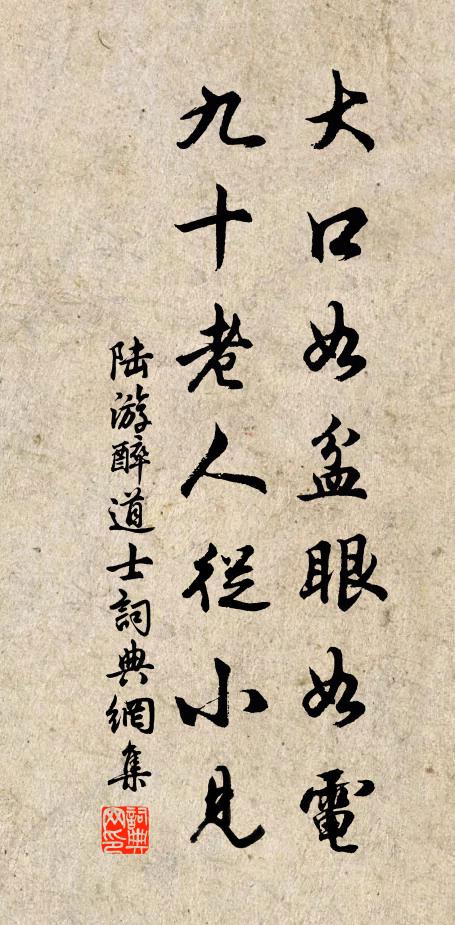 大口如盆眼如電
九十老人從小見
陆游醉道士詞典網集
詞典网印